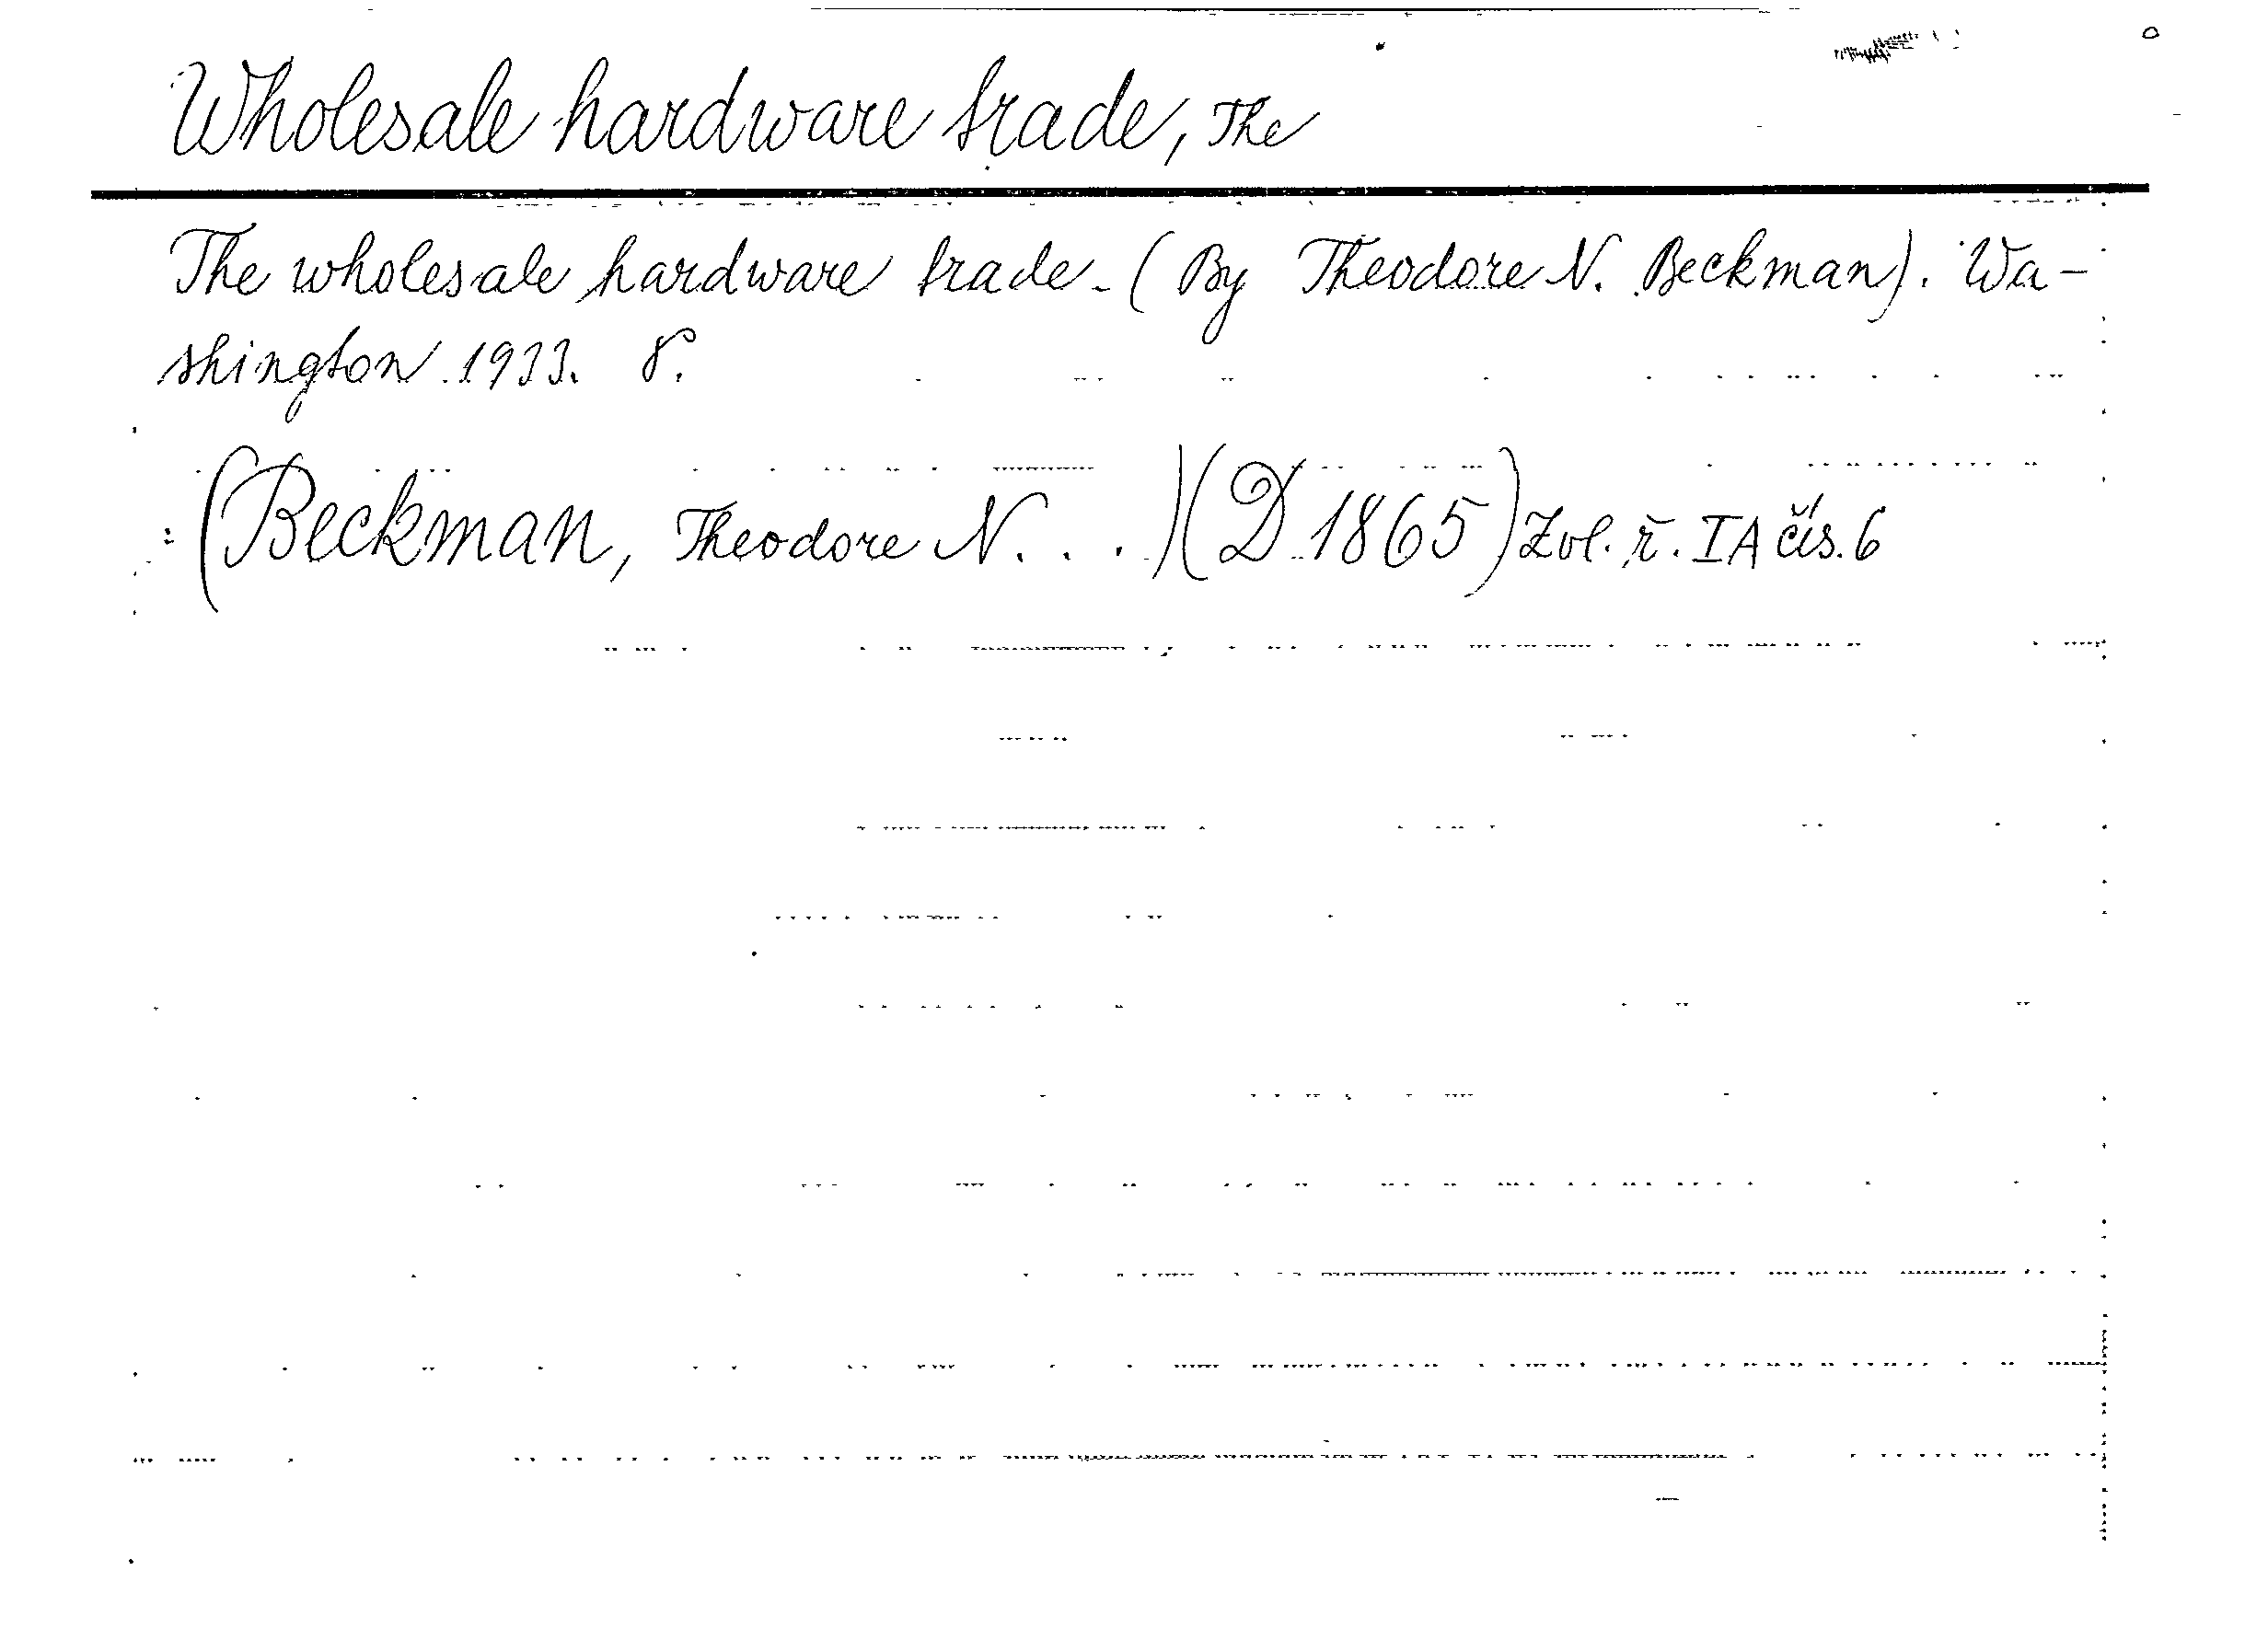 Wholesale hardware trade, The
The wholesale hardware trade. (By Theodore N. Beckman). Wa-
shington 1933. 8°.
: (Beckman, Theodore N. . . )(D 1865) Zvl. ř. IA čís. 6